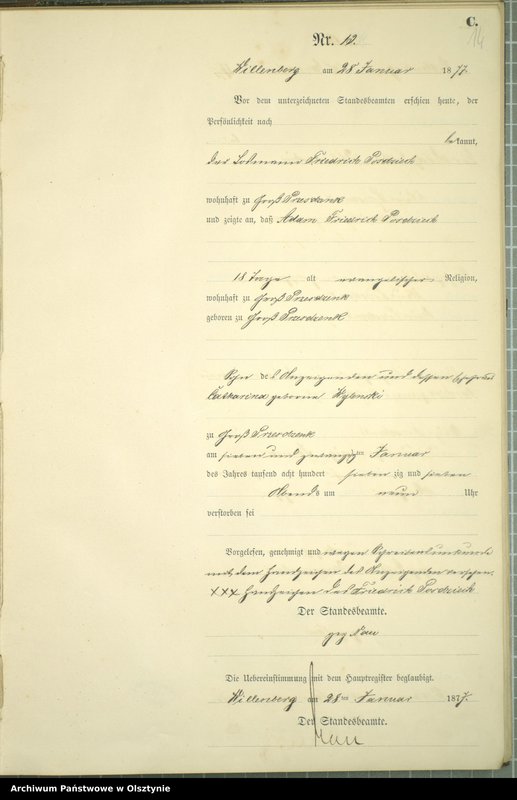 C.
14
Nr. 12.
Willenberg am 28 Januar 1877.
Vor dem unterzeichneten Standesbeamten erschien heute, der
Persönlichkeit nach
bekannt,
der Losmann Friedrich Pordzich
wohnhaft zu Groß
und zeigte an, daß Adam Friedrich Pordzich
18 Tage alt evangelischer Religion,
wohnhaft zu Groß
geboren zu Groß
Sohn des Anzeigenden und dessen Ehefrau
Catharina geborene
zu Groß
am sieben und zwanzigsten Januar
des Jahres tausend acht hundert siebenzig und sieben
Abends um neun Uhr
verstorben sei
Vorgelesen, genehmigt und wegen Schreibensunkunde
mit dem Handzeichen des Anzeigenden versehen.
XXX Handzeichen des Friedrich Pordzich
Der Standesbeamte.
gez Nau
Die Uebereinstimmung mit dem Hauptregister beglaubigt.
Willenberg am 28ten Januar 1877.
Der Standesbeamte.
Nau
Archiwum Państwowe w Olsztynie